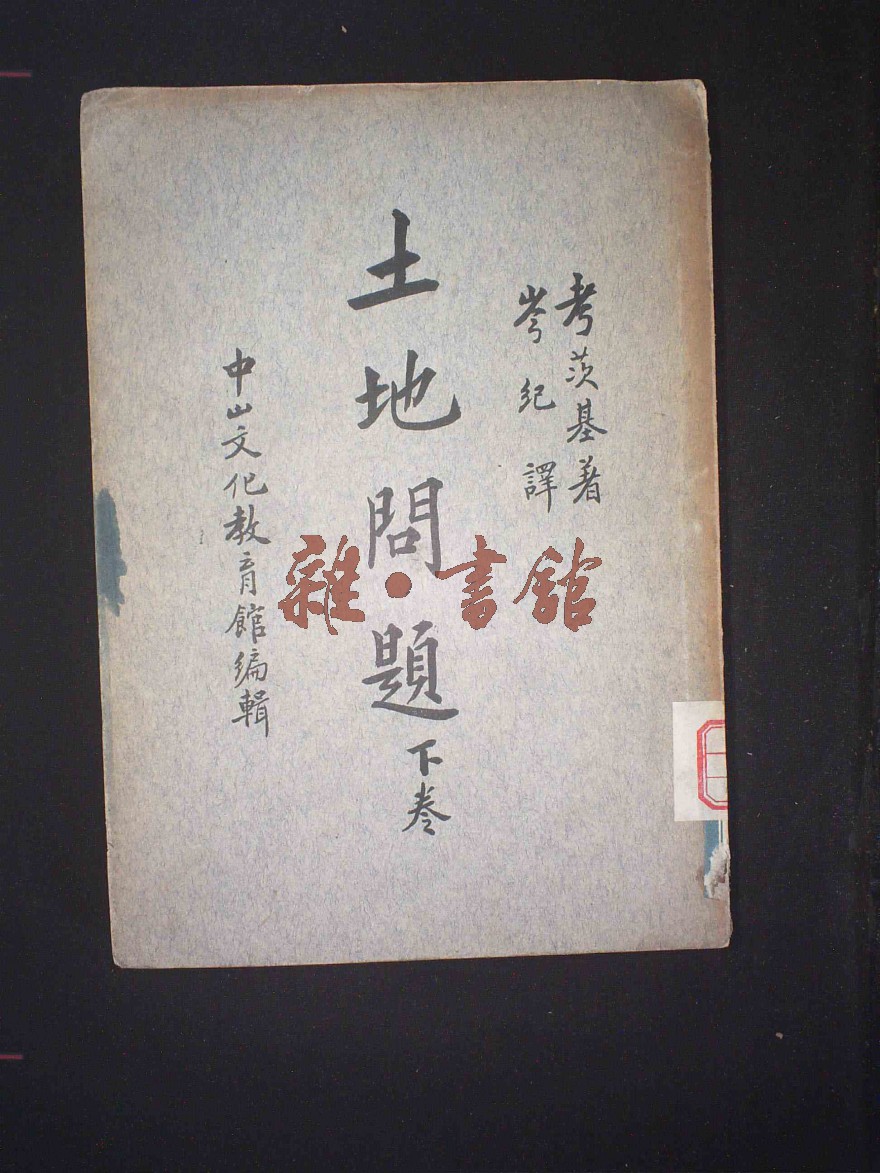 考茨基著
岑紀譯
土地問題下卷
中山文化教育館編輯
雜·書館